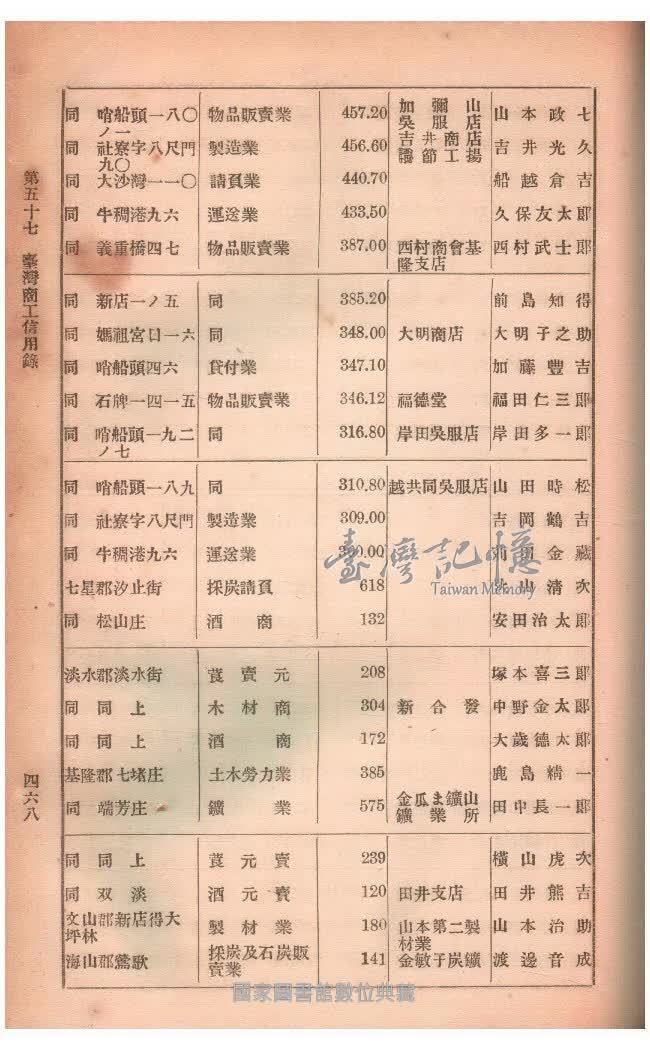 第五十七　臺灣商工信用錄
四六八
同　哨船頭一八〇ノ一　物品販賣業　457.20　加彌山吳服店　山本政七
同　社寮字八尺門九〇　製造業　456.60　吉井商店　節工揚　吉井光久
同　大沙灣一一〇　請負業　440.70　船越倉吉
同　牛稠港九六　運送業　433.50　久保友太郞
同　義重橋四七　物品販賣業　387.00　西村商會基隆支店　西村武士郞
同　新店一ノ五　同　385.20　前島知得
同　媽祖宮口一六　同　348.00　大明商店　大明子之助
同　哨船頭四六　貸付業　347.10　加藤豐吉
同　石牌一四一五　物品販賣業　346.12　福德堂　福田仁三郞
同　哨船頭一九二ノ七　同　316.80　岸田吳服店　岸田多一郞
同　哨船頭一八九　同　310.80　越共同吳服店　山田時松
同　社寮字八尺門　製造業　309.00　吉岡鶴吉
同　牛稠港九六　運送業　金藏
七星郡汐止街　採炭請負　618　山淸次
同　松山庄　酒商　132　安田治太郞
淡水郡淡水街　莨賣元　208　塚本喜三郞
同　同上　木材商　304　新合發　中野金太郞
同　同上　酒商　172　大歲德太郞
基隆郡七堵庄　土木勞力業　385　鹿島精一
同　瑞芳庄　鑛業　575　金瓜ま鑛山鑛業所　田中長一郞
同　同上　莨元賣　239　橫山虎次
同　双淡　酒元賣　120　田井支店　田井熊吉
文山郡新店得大坪林　製材業　180　山本第二製材業　山本治助
海山郡鶯歌　採炭及石炭販賣業　141　金敏于炭鑛　渡邊音成
臺灣記憶
Taiwan Memory
國家圖書館數位典藏